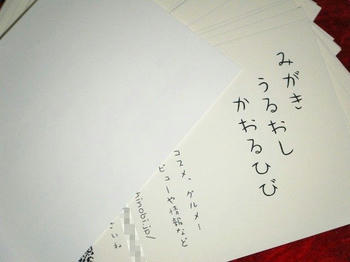 みがき
うるおし
かおるひび
コスメ、グルメー
ビューや情報など
ninobi.jp/